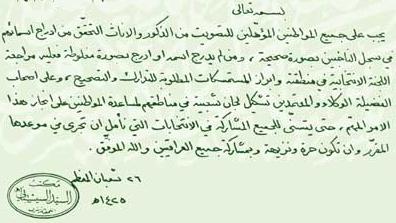 بسمه تعالى
يجب على جميع المواطنين المؤهلين للتصويت من الذكور والاناث التحقق من ادراج اسمائهم
في سجل الناخبين بصورة صحيحة ، ومن لم يدرج اسمه او ادرج بصورة مغلوطة فعليه مراجعة
اللجنة الانتخابية في منطقته وابراز المستمسكات المطلوبة للتدارك والتصحيح ، وعلى اصحاب
الفضيلة الوكلاء والمعتمدين تشكيل لجان شعبية في مناطقهم لمساعدة المواطنين على انجاز هذا
الامر المهم ، حتى يتسنّى للجميع المشاركة في الانتخابات التي نأمل ان تجرى في موعدها
المقرّر وان تكون حرة ونزيهة وبمشاركة جميع العراقيين والله الموفق .
٢٦ شعبان المعظم
١٤٢٥هـ
مكتب
السيد السيستاني